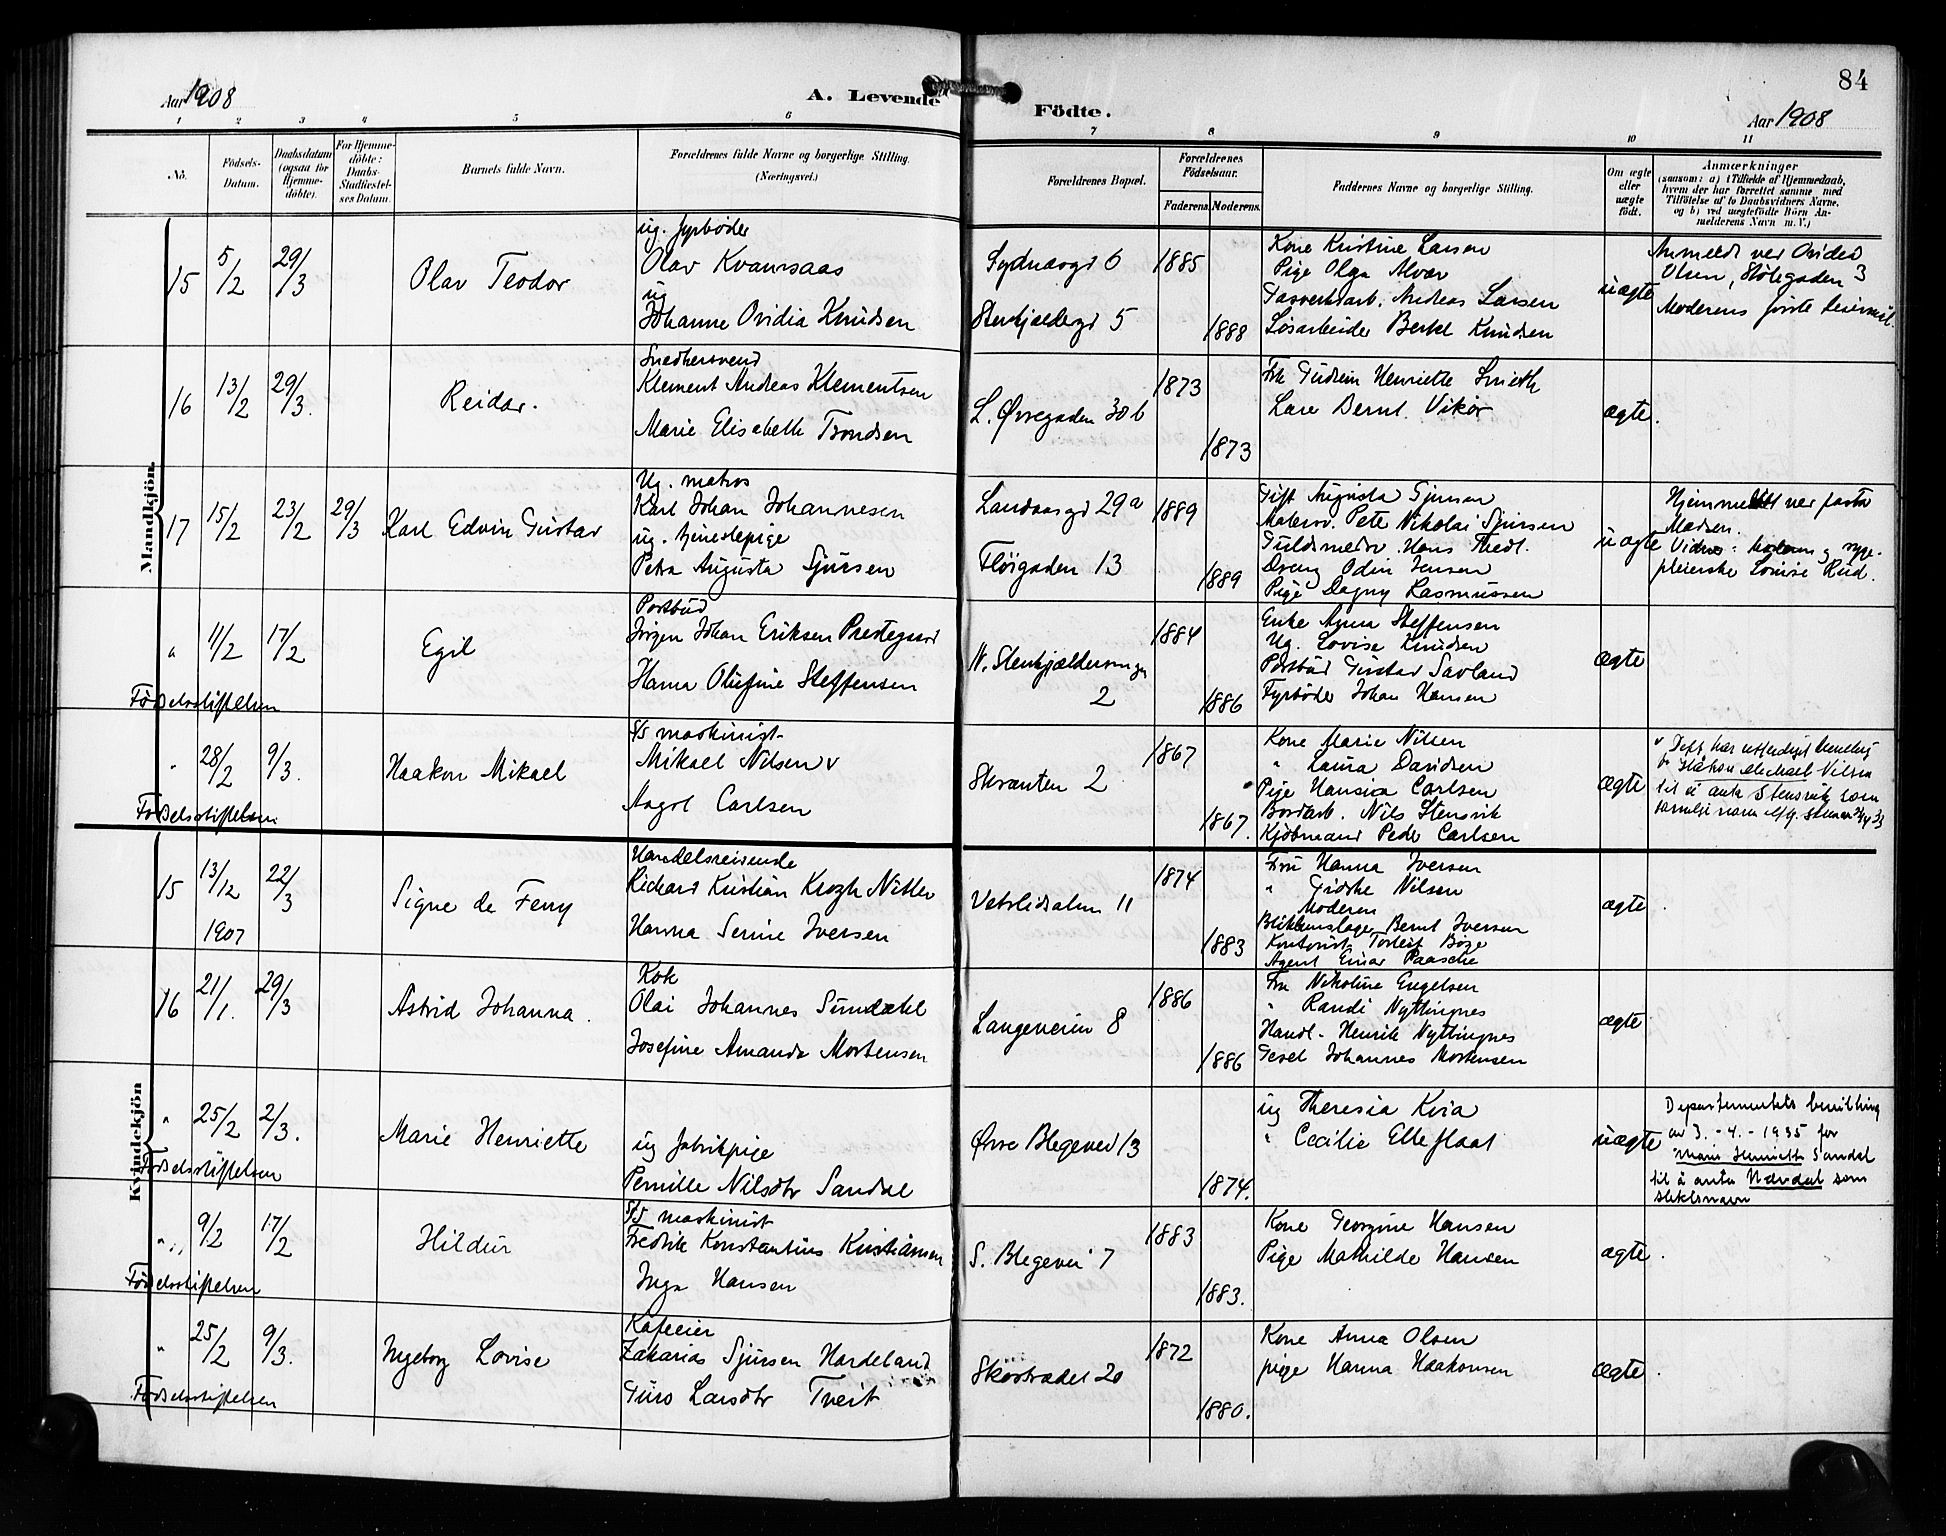 84
Aar 1908
A. Levende Födte.
Aar 1908
1 2 3 4 5 6 7 8 9 10 11
No.
Födsels-Datum.
Daabsdatum (ogsaa for Hjemmedöbte).
For Hjemmedöbte: Daabs-Stadfæstelses Datum.
Barnets fulde Navn.
Forældrenes fulde Navne og borgerlige Stilling.
(Næringsvei.)
Forældrenes Bopæl.
Forældrenes Födselsaar.
Faderens. Moderens.
Faddernes Navne og borgerlige Stilling.
Om ægte eller uægte födt.
Anmærkninger
(saasom: a) i Tilfælde af Hjemmedaab,
hvem der har forrettet samme, med
Tilföielse af to Daabsvidners Navne,
og b) ved uægtefödte Börn An-
melderens Navn m. V.)
Mandkjön.
15 5/2 29/3 Olav Teodor
ug. fyrböder
Olav Kvamsaas
ug
Johanne Ovidia Knudsen
Sydnæsgd 6
Stenkjeldergd 5
1885
1888
Kone Kristine Larsen
Pige Olga Alvær
Gasverksarb. Andreas Larsen
Løsarbeider Bertel Knudsen
uægte
Anmeldt ved Ovidea
Olsen, Stölegaden 3
Moderens første leiermål.
16 13/2 29/3. Reidar.
Snedkersvend
Klement Andreas Klementsen
Marie Elisabeth Trondsen
L. Øvregaden 30 b
1873
1873
Frk Gudrun Henriette Smith
Lars Bernt. Vikör
ægte.
17 15/2 23/2 29/3 Karl Edvin Gustav
Ug. matros
Karl Johan Johannesen
ug. tjenestepige
Petra Augusta Sjursen
Landaasgd 29a
Flöigaden 13
1889
1889
Gift Augusta Sjursen
Malersv. Peter Nikolai Sjursen
Guldsmedsv. Hans Thedl.
Dreng Odin Jensen
Pige Dagny Rasmussen
uægte
Madsen.
pleierske Louise Rud.
" 11/2 17/2 Egil
Födselsstiftelsen
Postbud
Jörgen Johan Eriksen Prestegaard
Hanna Olufine Steffensen
N. Stenkjældersmug
2
1884
1886
Enke Anna Steffensen
Ug. Lovise Knudsen
Postbud Gustav Savland
Fyrböder Johan Hansen
ægte
" 28/2 9/3. Haakon Mikael
Födselsstiftelsen
S/S maskinist
Mikael Nilsen v
Aagot Carlsen
Skranten 2
1867
1867.
Kone Marie Nilsen
" Laura Davidsen
Pige Hansina Carlsen
Bordarb. Nils Stensvik
Kjöbmand Peder Carlsen
ægte
v Dept. har utferdiget bevilling
for Håkon Michael Nilsen
til å anta Stensvik som
Kvindekjön
15 13/12 22/3 Signe de Ferry
1907
Handelsreisende
Richard Kristian Krogh Nitter
Hanna Serine Iversen
Vetrlidsalm 11
1874
1883
Fru Hanna Iversen
" Gidske Nilsen
Moderen
Blikkenslager Bernt Iversen
Kontorist Torleif Böge
Agent Einar Paasche
ægte.
16 21/1. 29/3 Astrid Johanna.
Kok
Olai Johannes Sundahl
Josefine Amanda Mortensen
Langeveien 8
1886
1886
Fru Nikoline Engelsen
" Randi Nyttingnes
Handl. Henrik Nyttingnes
Gesel Johannes Mortensen
ægte
" 25/2 2/3. Marie Henriette
Födselsstiftelsen
ug fabrikpige
Pernille Nilsdtr Sandal
Øvre Blegevei 13
1874.
ug Theresia Kvia
" Cecilie Elleflaat
uægte
Departementets bevilling
av 3. - 4. - 1935 for
Marie Henriette Sandal
til å anta Nærdal som
slektsnavn
" 9/2 17/2 Hildur
Födselsstiftelsen
S/S maskinist
Fredrik Konstantius Kristiansen
Inga Hansen
S. Blegevei 7
1883
1883.
Kone Georgine Hansen
Pige Mathilde Hansen
ægte.
" 25/2 9/3. Ingeborg Lovise
Födselsstiftelsen
Kafeeier
Zakarias Sjursen Hordeland
Guro Larsdtr Tveit
Skostrædet 20
1872
1880.
Kone Anna Olsen
pige Hanna Haakonsen
ægte.